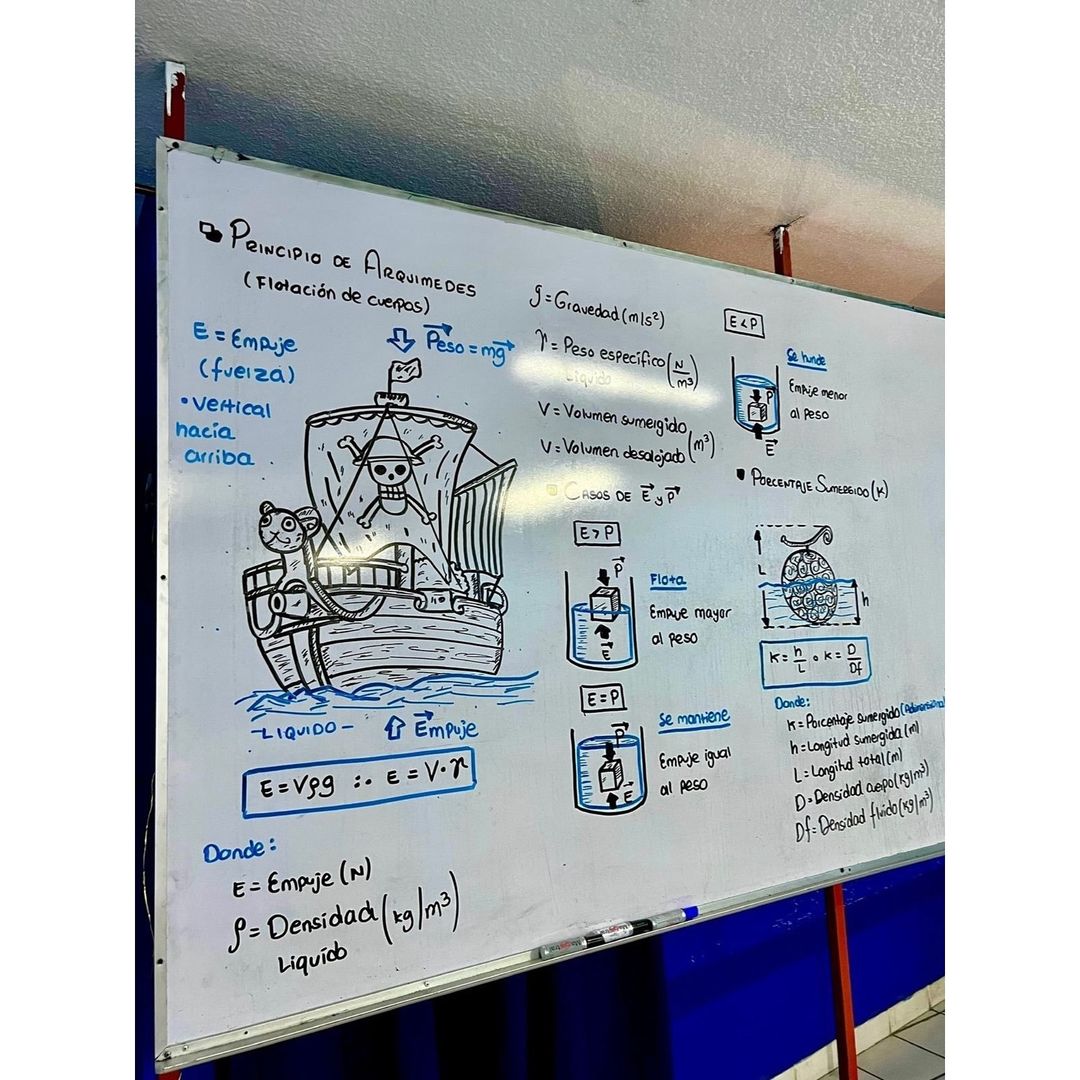 PRINCIPIO DE ARQUIMEDES
(Flotación de cuerpos)
E = Empuje
(fuerza)
• Vertical
hacia
arriba
Peso = mg
-LIQUIDO-
Empuje
E = Vρg ∴ E = V·γ
Donde:
E = Empuje (N)
ρ = Densidad (kg/m³)
Liquido
g = Gravedad (m/s²)
γ = Peso específico (N/m³)
Liquido
V = Volumen sumergido
V = Volumen desalojado (m³)
CASOS DE E y P
E > P
P
E
Flota
Empuje mayor
al peso
E = P
P
E
Se mantiene
Empuje igual
al peso
E < P
P
E
Se hunde
Empuje menor
al peso
PORCENTAJE SUMERGIDO (K)
L
h
K = h/L o K = D/Df
Donde:
K = Porcentaje sumergido (Adimensional
h = Longitud sumergida (m)
L = Longitud total (m)
D = Densidad cuerpo (kg/m³)
Df = Densidad fluido (kg/m³)
Magistral